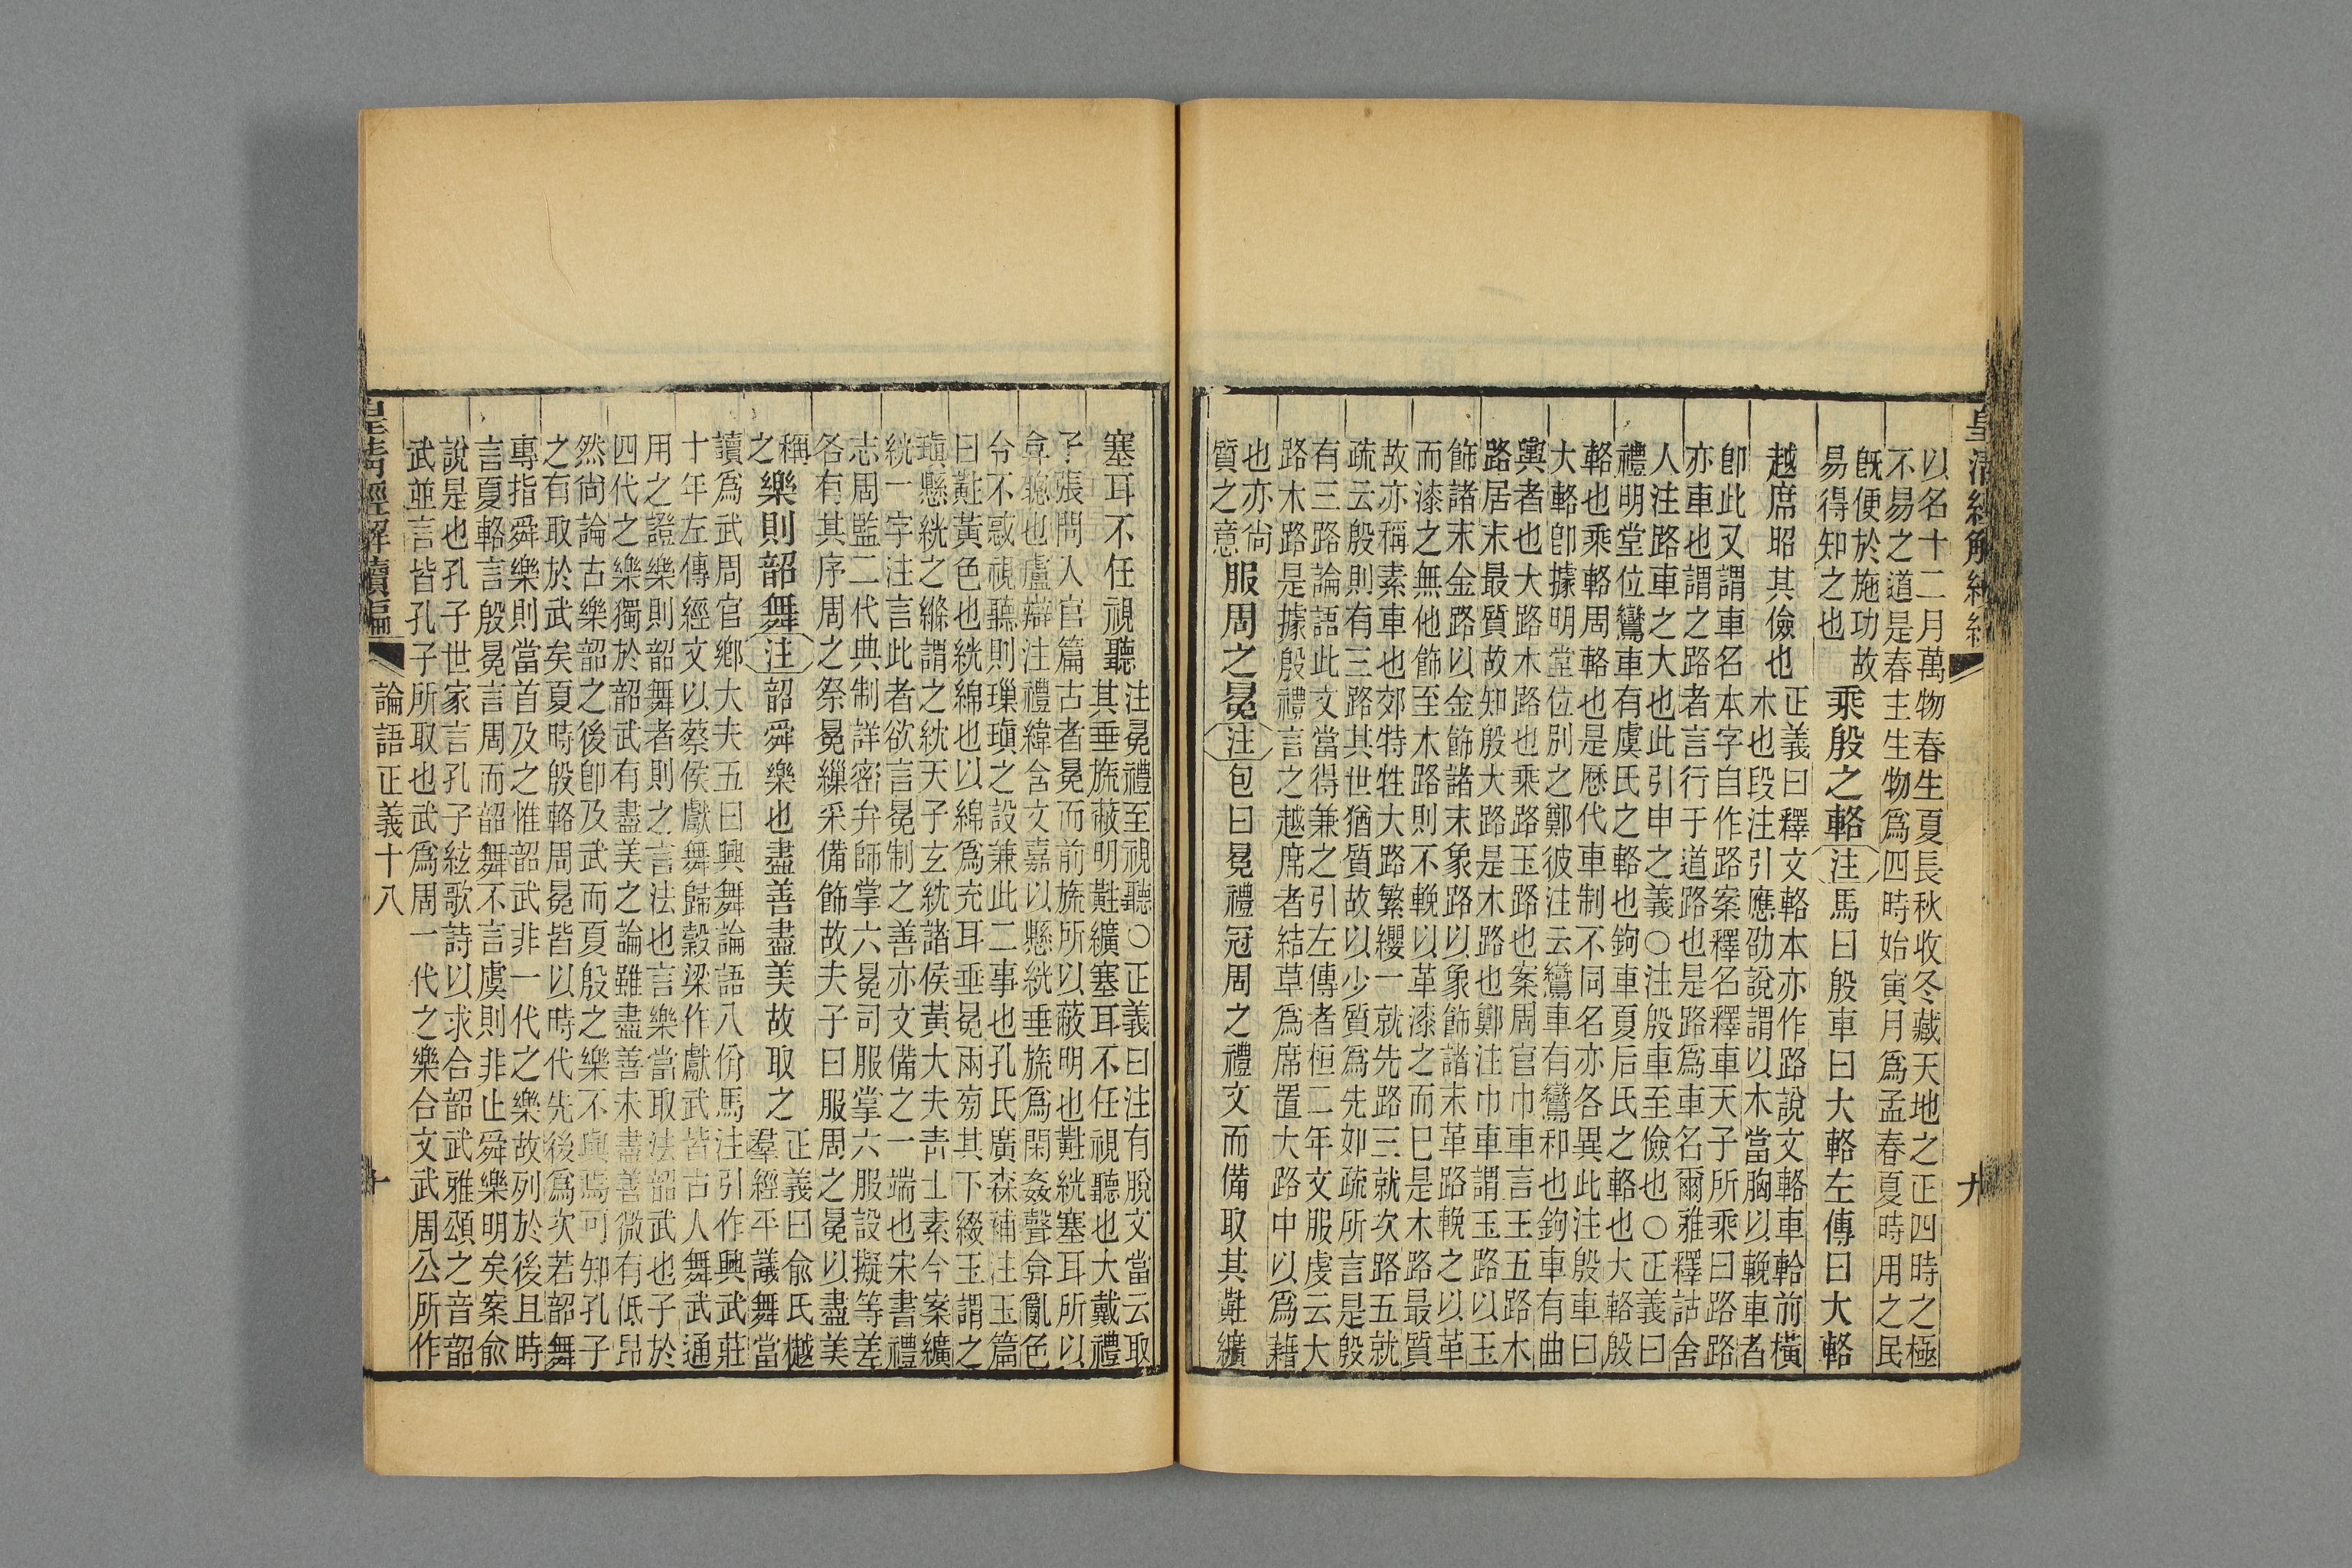 皇清經解續編 九
以名十二月萬物春生夏長秋收冬藏天地之正四時之極
不易之道是春主生物爲四時始寅月爲孟春夏時用之民
旣便於施功故
易得知之也
乘殷之輅注馬曰殷車曰大輅左傳曰大輅
越席昭其儉也
正義曰釋文輅本亦作路說文輅車軨前橫
木也段注引應劭說謂以木當胸以輓車者
卽此又謂車名本字自作路案釋名釋車天子所乘曰路路
亦車也謂之路者言行于道路也是路爲車名爾雅釋詁舍
人注路車之大也此引申之義○注殷車至儉也○正義曰
禮明堂位鸞車有虞氏之輅也鉤車夏后氏之輅也大輅殷
輅也乘輅周輅也是歷代車制不同名亦各異此注殷車曰
大輅卽據明堂位別之鄭彼注云鸞車有鸞和也鉤車有曲
輿者也大路木路也乘路玉路也案周官巾車言王五路木
路居末最質故知殷大路是木路也鄭注巾車謂玉路以玉
飾諸末金路以金飾諸末象路以象飾諸末革路輓之以革
而漆之無他飾至木路則不輓以革漆之而已是木路最質
故亦稱素車也郊特牲大路繁纓一就先路三就次路五就
疏云殷則有三路其世猶質故以少質爲先如疏所言是殷
有三路論語此文當得兼之引左傳者桓二年文服虔云大
路木路是據殷禮言之越席者結草爲席置大路中以爲藉
也亦尚
質之意
服周之冕注包曰冕禮冠周之禮文而備取其黈纊
塞耳不任視聽
注冕禮至視聽○正義曰注有脫文當云取
其垂旒蔽明黈纊塞耳不任視聽也大戴禮
子張問人官篇古者冕而前旒所以蔽明也黈絖塞耳所以
弇聰也盧辯注禮緯含文嘉以懸絖垂旒爲閑姦聲弇亂色
令不惑視聽則璅瑱之設兼此二事也孔氏廣森補注玉篇
曰黈黃色也絖綿也以綿爲充耳垂冕兩旁其下綴玉謂之
瑱懸絖之縧謂之紞天子玄紞諸侯黃大夫靑士素今案纊
絖一字注言此者欲言冕制之善亦文備之一端也宋書禮
志周監二代典制詳密弁師掌六冕司服掌六服設擬等差
各有其序周之祭冕繅采備飾故夫子曰服周之冕以盡美
稱
之
樂則韶舞注韶舜樂也盡善盡美故取之
正義曰俞氏樾
羣經平議舞當
讀爲武周官鄉大夫五曰興舞論語八佾馬注引作興武莊
十年左傳經文以蔡侯獻舞歸穀梁作獻武皆古人舞武通
用之證樂則韶舞者則之言法也言樂當取法韶武也子於
四代之樂獨於韶武有盡美之論雖盡善未盡善微有低昻
然尚論古樂韶之後卽及武而夏殷之樂不與焉可知孔子
之有取於武矣夏時殷輅周冕皆以時代先後爲次若韶舞
專指舜樂則當首及之惟韶武非一代之樂故列於後且時
言夏輅言殷冕言周而韶舞不言虞則非止舜樂明矣案俞
說是也孔子世家言孔子絃歌詩以求合韶武雅頌之音韶
武並言皆孔子所取也武爲周一代之樂合文武周公所作
皇清經解續編 論語正義十八 十